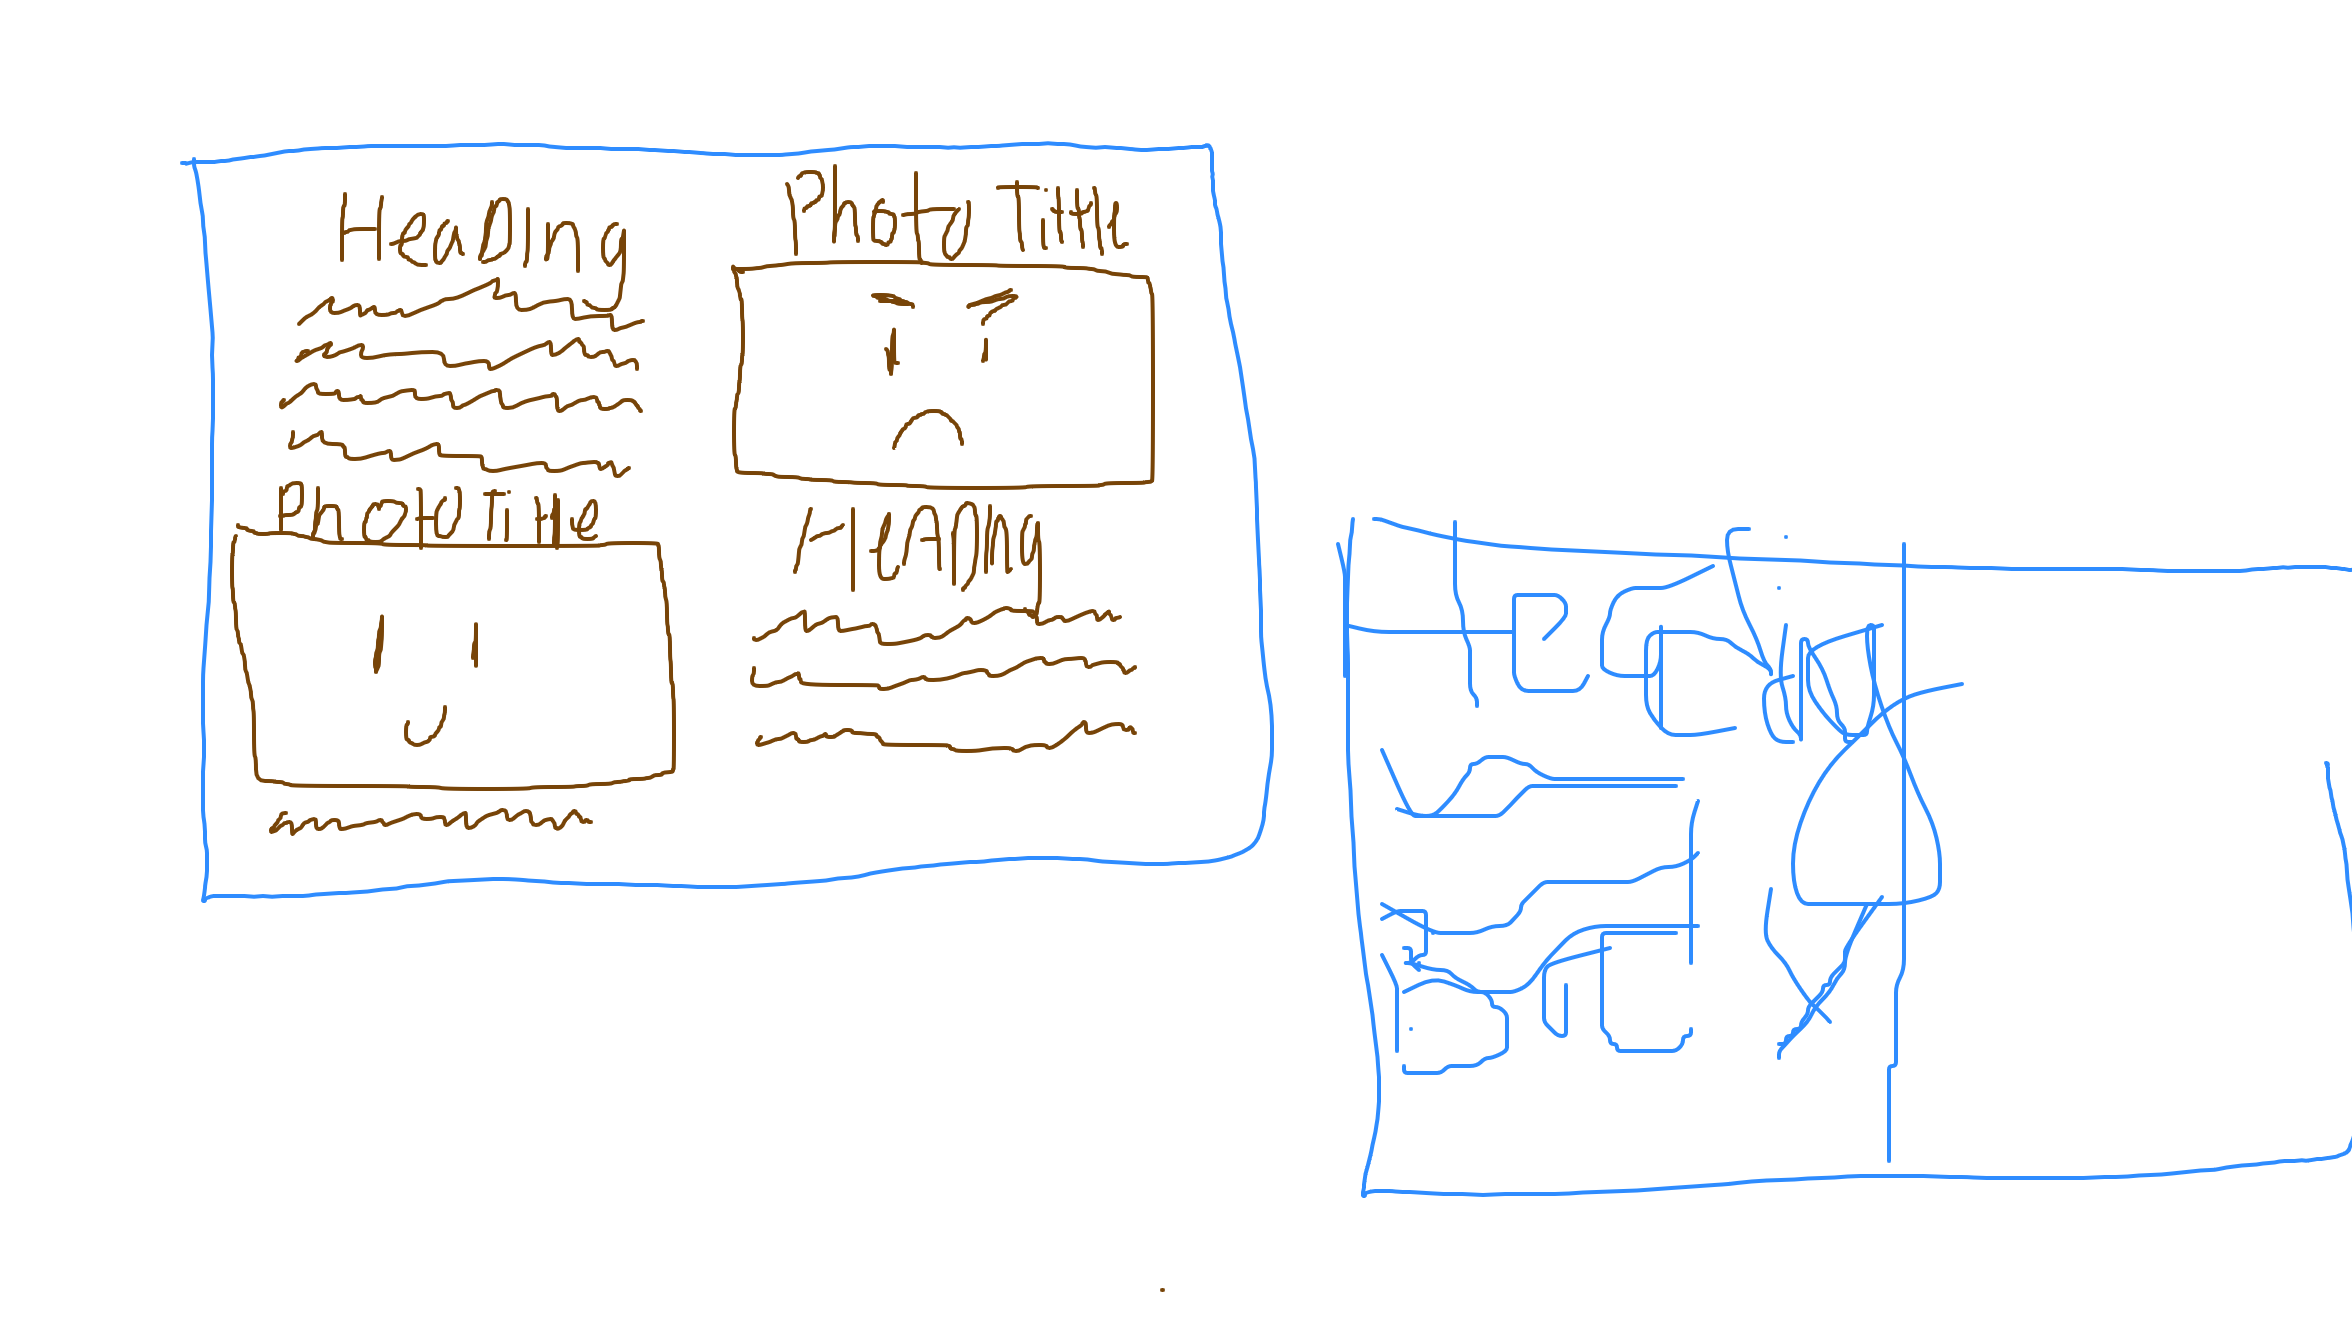 Heading
Photo Title
Photo Title
Heading
Heading